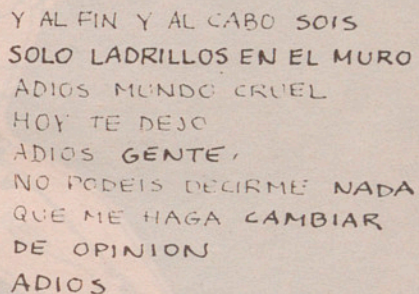 Y AL FIN Y AL CABO SOIS
SOLO LADRILLOS EN EL MURO
ADIOS MUNDO CRUEL
HOY TE DEJO
ADIOS GENTE,
NO PODEIS DECIRME NADA
QUE ME HAGA CAMBIAR
DE OPINION
ADIOS